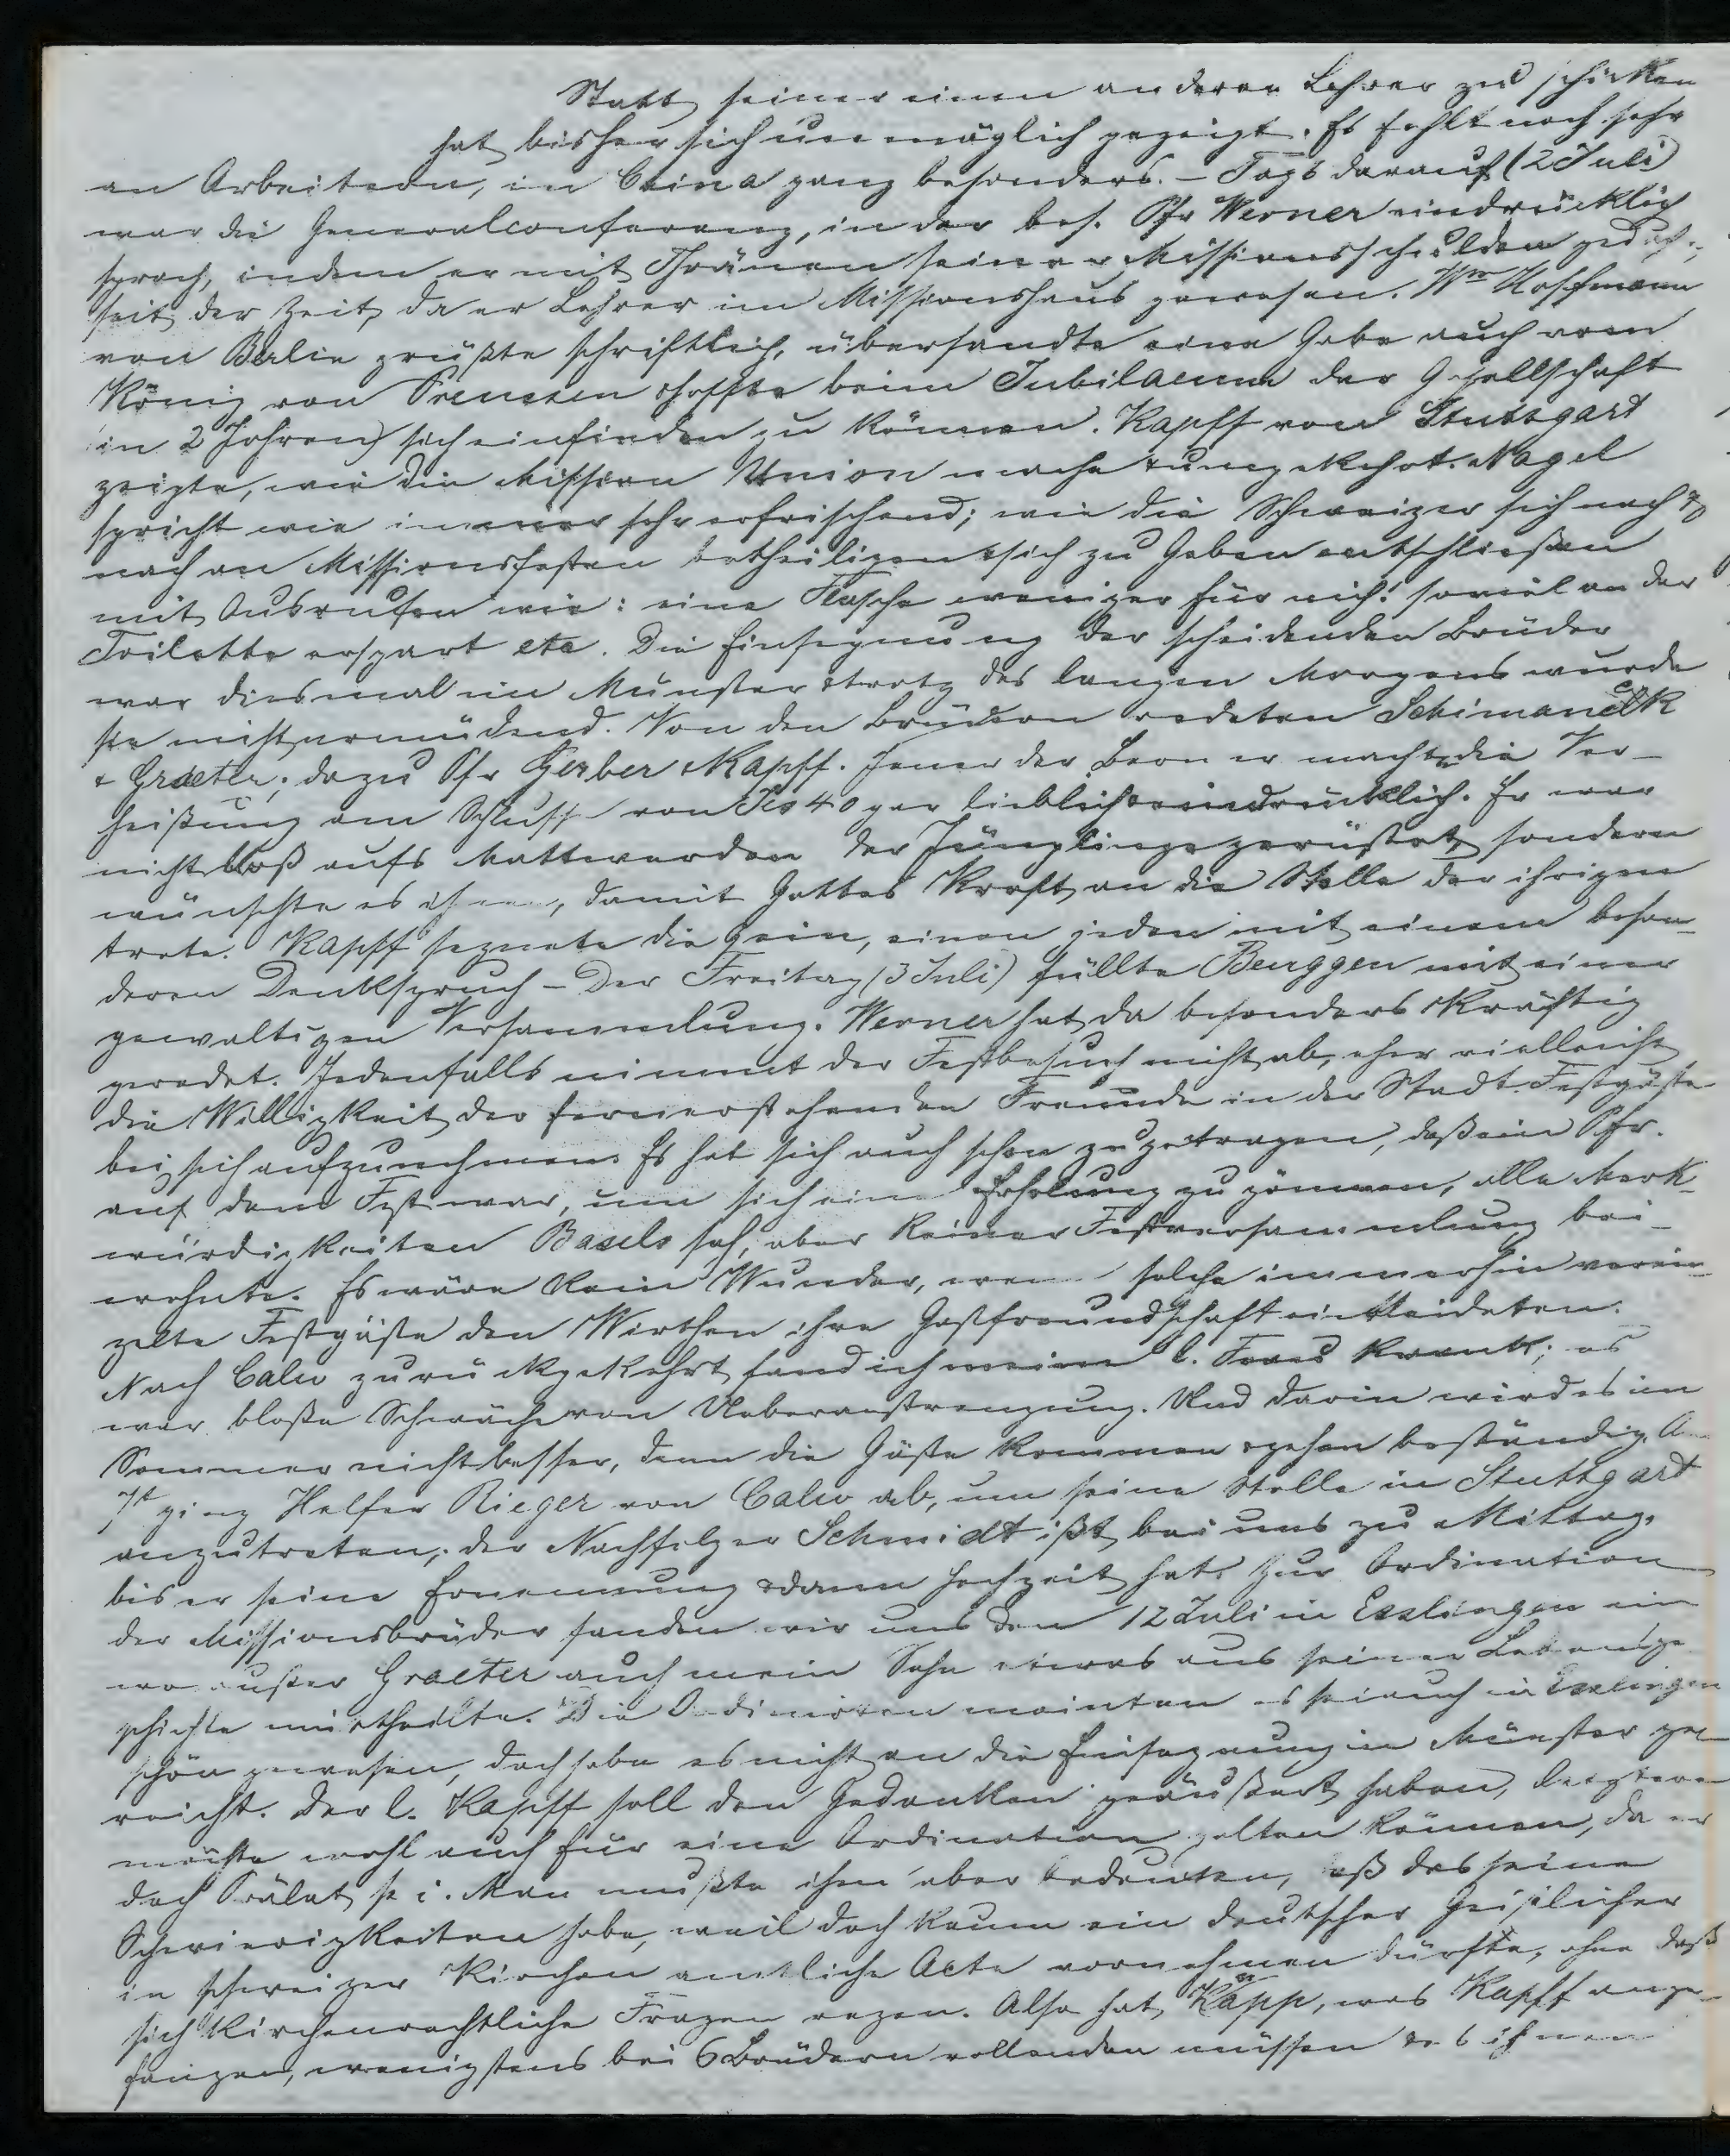 Statt seiner einen anderen Lehrer zu schicken
hat bisher sich unmöglich gezeigt. Es fehlt noch sehr
an Arbeitern, in China ganz besonders. - Tags darauf (2 Juli)
war die Generalconferenz, in der bes. Pfr Werner eindrücklich
sprach, indem er mit Thränen seiner Missionsschulden gedach.,
seit der Zeit, da er Lehrer im Missionshaus gewesen. Wm Hoffmann
von Berlin grüßte schriftlich, übersandte eine Gabe auch vom
König von Preussen & hoffte beim Jubilaeum der Gesellschaft
(in 2 Jahren) sich einfinden zu können. Kapff von Stuttgart
zeigte, wie die Mission Union mache & umgekehrt. Nagel
spricht wie immer sehr erfrischend; wie die Schweizer sich nach &
nach an Missionsfesten betheiligen & sich zu Gaben entschließen
mit Ausrufen wie: eine Flasche weniger für mich! soviel an der
Toilette erspart etc. Die Einsegnung der scheidenden Brüder
war diesmal im Münster & trotz des langen Morgens wurde
sie nicht ermüdend. Von den Brüdern redeten Schimanek
& Graeter; dazu Pfr Gerber & Kapff. Jener der Berner machte die Ver-
heißung am Schluss von Jes 40 gar lieblich & eindrücklich. Er war
nicht bloß aufs Mattwerden der Jünglinge gerüstet, sondern
wünschte es ihnen, damit Gottes Kraft an die Stelle der ihrigen
trete. Kapff segnete die Hein, einen jeden mit einem beson-
deren Denkspruch - Der Freitag (3 Juli) füllte Beuggen mit einer
gewaltigen Versammlung. Werner hat da besonders kräftig
geredet. Jedenfalls nimmt der Festbesuch nicht ab, eher vielleicht
die Willigkeit der fernerstehenden Freunde in der Stadt Festgäste
bei sich aufzunehmen. Es hat sich auch schon zugetragen, daß ein Pfr.
auf dem Fest war, um sich eine Erholung zu gönnen, alle Merk-
würdigkeiten Basels sah, aber keiner Festversammlung bei-
wohnte. Es wäre kein Wunder, wenn solche immerhin verein-
zelte Festgäste den Wirthen ihre Gastfreundschaft entleideten.
Nach Calw zurückgekehrt fand ich meine l. Frau krank; es
war bloße Schwäche von Ueberanstrengung. Und darin wird es im
Sommer nicht besser, denn die Gäste kommen & gehen beständig. Am
7t ging Helfer Rieger von Calw ab, um seine Stelle in Stuttgart
anzutreten; der Nachfolger Schmidt ißt bei uns zu Mittag,
bis er seine Ernennung & dann Hochzeit hat. Zur Ordination
der Missionsbrüder fanden wir uns den 12 Juli in Esslingen ein
wo außer Graeter auch mein Sohn etwas aus seiner Lebensge
schichte mittheilte. Die Ordinirten meinten es sei auch in Esslingen
schön gewesen, doch habe es nicht an die Einsegnung im Münster ge
reicht. Der l. Kapff soll den Gedanken geäußert haben, letztere
möchte wohl auch für eine Ordination gelten können, da er
doch Prälat sei. Man mußte ihm aber bedeuten, daß das seine
Schwierigkeiten habe, weil doch kaum ein deutscher Geistlicher
in schweizer Kirchen amtliche Acte vornehmen dürfte, ohne daß
sich kirchenrechtliche Fragen regen. Also hat Kapp, was Kapff ange-
fangen, wenigstens bei 6 Brüdern vollenden müssen & es ihnen